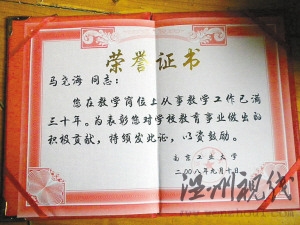 荣誉证书
马尧海 同志：
您在教学岗位上从事教学工作已满
三十年。为表彰您对学校教育事业做出的
积极贡献，特颁发此证，以资鼓励。
南京工业大学
二00八年九月十日
温州视线